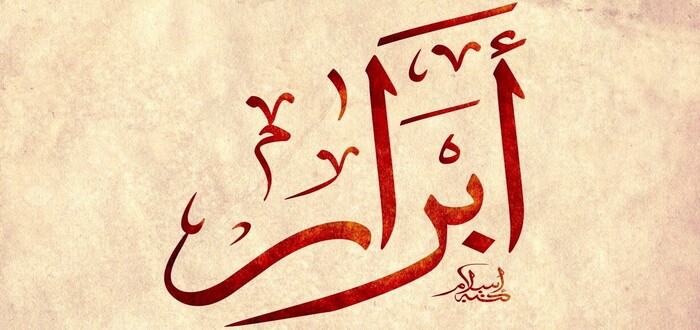 أبرار
كتبه إسلام